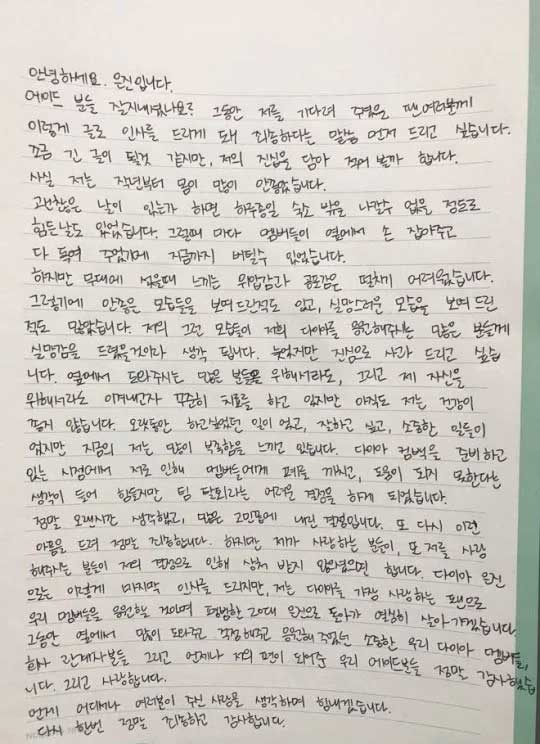 안녕하세요. 은진입니다.
에이드 분들 잘지내셨나요? 그동안 저를 기다려 주셨을 팬여러분께
이렇게 글로 인사를 드리게 돼 죄송하다는 말씀 먼저 드리고 싶습니다.
조금 긴 글이 될것 같지만, 저의 진심을 담아 적어 볼까 합니다.
사실 저는 작년부터 몸이 많이 안좋았습니다.
괜찮은 날이 있는가 하면 하루종일 숙소 밖을 나갈수 없을 정도로
힘든날도 있었습니다. 그럴때 마다 멤버들이 옆에서 손 잡아주고
다 독여 주었기에 지금까지 버틸수 있었습니다.
하지만 무대에 섰을때 느끼는 위압감과 공포감은 떨치기 어려웠습니다.
그렇기에 안좋은 모습들을 보여드린적도 있고, 실망스러운 모습을 보여드린
적도 많았습니다. 저의 그런 모습들이 저희 다이아를 응원해주시는 많은 분들께
실망감을 드렸을것이라 생각 됩니다. 늦었지만 진심으로 사과 드리고 싶습
니다. 옆에서 도와주시는 많은 분들을 위해서라도, 그리고 제 자신을
위해서라도 이겨내고자 꾸준히 치료를 하고 있지만 아직도 저는 건강이
좋지 않습니다. 오랫동안 하고싶었던 일이 었고, 잘하고 싶고, 소중한 일들이
었지만 지금의 저는 많이 부족함을 느끼고 있습니다. 다이아 컴백을 준비하고
있는 시점에서 저로 인해 멤버들에게 폐를 끼치고, 도움이 되지 못한다는
생각이 들어 힘들지만 팀 탈퇴라는 어려운 결정을 하게 되었습니다.
정말 오랜시간 생각했고, 많은 고민끝에 내린 결정입니다. 또 다시 이런
아픔을 드려 정말 죄송합니다. 하지만 제가 사랑하는 분들이, 또 저를 사랑
해주시는 분들이 저의 결정으로 인해 상처 받지 않았으면 합니다. 다이아 은진
으로는 이렇게 마지막 인사를 드리지만, 저는 다이아를 가장 사랑하는 팬으로
우리 멤버들을 응원할 것이며 평범한 20대 은진으로 돌아가 열심히 살아가겠습니다.
그동안 옆에서 많이 도와주고 걱정해주고 응원해 주었던 소중한 우리 다이아 멤버들,
회사 관계자분들 그리고 언제나 저의 편이 되어준 우리 에이드분들 정말 감사했습
니다. 그리고 사랑합니다.
언제 어디서나 여러분이 주신 사랑을 생각하며 힘내겠습니다.
다시 한번 정말 죄송하고 감사합니다.